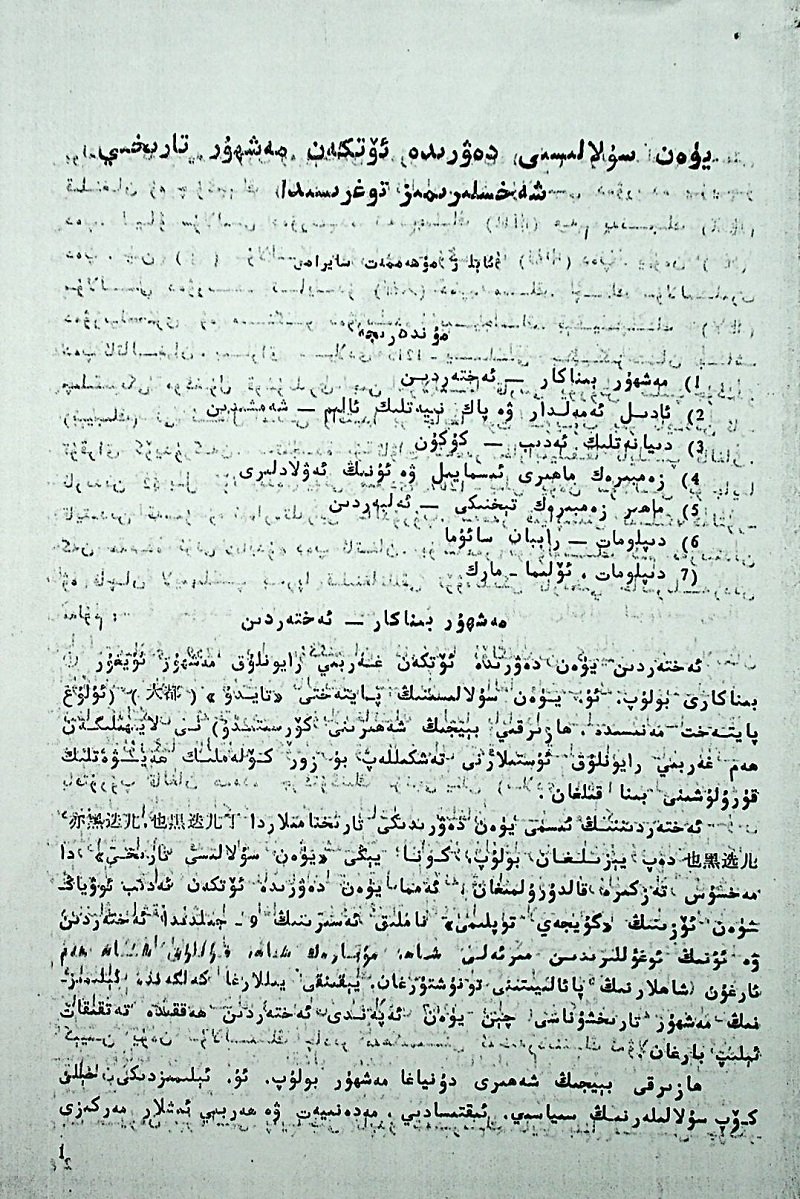 يۈەن سۇلالىسى دەۋرىدە ئۆتكەن مەشھۇر تارىخىي
شەخسلىرىمىز توغرىسىدا
مۇھەممەت سايرامى
مۇندەرىجە
1) مەشھۇر بىناكار — ئەختەردىن
2) ئادىل ئەمەلدار ۋە پاك نىيەتلىك ئالىم — شەمشىدىن
3) دىيانەتلىك ئەدىب — كۇكۇن
4) زەمبىرەك ماھىرى ئىسمايىل ۋە ئۇنىڭ ئەۋلادلىرى
5) ماھىر زەمبىرەك تېخنىكى — ئەلىبەردىن
6) دىپلومات — راببان سائۇما
7) دىپلومات، ئۆلىما - مارك
مەشھۇر بىناكار — ئەختەردىن
ئەختەردىن يۈەن دەۋرىدە ئۆتكەن غەربىي رايونلۇق مەشھۇر ئۇيغۇر ①
بىناكارى بولۇپ، ئۇ، يۈەن سۇلالىسىنىڭ پايتەختى «تايدۇ» (大都) (ئۇلۇغ
پايتەخت مەنىسىدە، ھازىرقى بېيجىڭ شەھىرىنى كۆرسىتىدۇ) نى لايىھىلىگەن
ھەم غەربىي رايونلۇق ئۇستىلارنى تەشكىللەپ بۇ زور كۆلەملىك ھەيۋەتلىك
قۇرۇلۇشىنى بىنا قىلغان.
ئەختەردىننىڭ ئىسمى يۈەن دەۋرىدىكى تارىخنامىلاردا 亦黑迭儿، 也黑迭儿丁
也黑迭儿 دەپ يېزىلغان بولۇپ، كونا، يېڭى «يۈەن سۇلالىسى تارىخى» دا
مەخسۇس تەزكىرە قالدۇرۇلمىغان. ئەمما يۈەن دەۋرىدە ئۆتكەن ئەدىب ئوۋياڭ
شۈەن ئۆزىنىڭ «گۇيجەي توپلىمى» ناملىق ئەسىرىنىڭ 9 - جىلدىدا ئەختەردىن
ۋە ئۇنىڭ ئوغۇللىرىدىن مىرئەلى شاھ، مۇبارەك شاھ،
شاھلارنىڭ پائالىيىتىنى تونۇشتۇرغان. يېقىنقى يىللارغا كەلگەندە ئېلىمىز-
نىڭ مەشھۇر تارىخشۇناسى چېن يۈەن ئەپەندى ئەختەردىن ھەققىدە تەتقىقات
ئېلىپ بارغان.
ھازىرقى بېيجىڭ شەھىرى دۇنياغا مەشھۇر بولۇپ، ئۇ، ئېلىمىزدىكى خېلى
كۆپ سۇلالىلەرنىڭ سىياسىي، ئىقتىسادىي، مەدەنىيەت ۋە ھەربىي ئىشلار مەركىزى
1